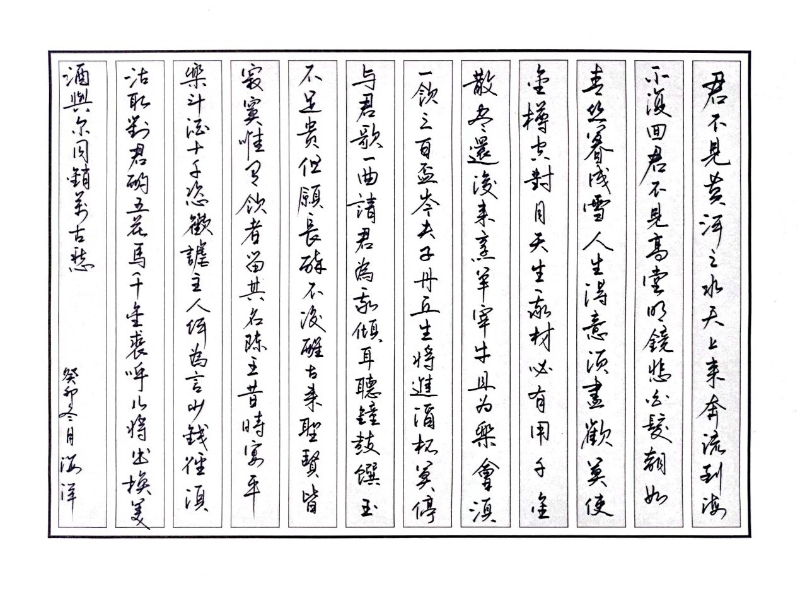 君不見黄河之水天上来奔流到海
不復回君不見高堂明鏡悲白髮朝如
青丝暮成雪人生得意须盡歡莫使
金樽空對月天生我材必有用千金
散尽還復来烹羊宰牛且为樂會須
一飲三百盃岑夫子丹丘生將進酒杯莫停
与君歌一曲請君為我傾耳聽鐘鼓饌玉
不足貴但願長醉不復醒古来聖賢皆
寂寞惟有飲者留其名陈王昔時宴平
樂斗酒十千恣歡謔主人何為言少錢徑須
沽取對君酌五花馬千金裘呼儿將出換美
酒與尔同銷萬古愁
癸卯冬月海洋